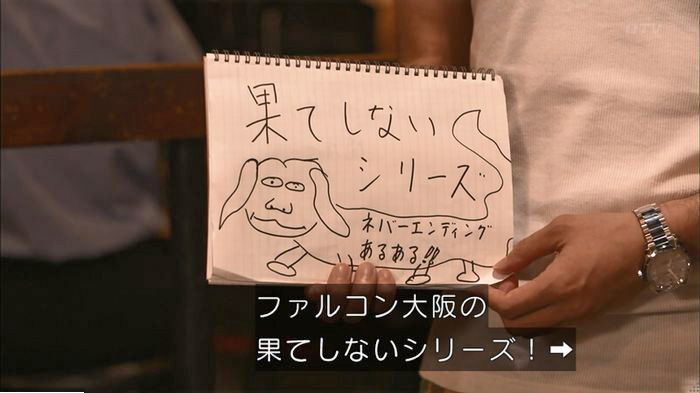 果てしない
シリーズ
ネバーエンディング
あるある!!
ファルコン大阪の
果てしないシリーズ！➡